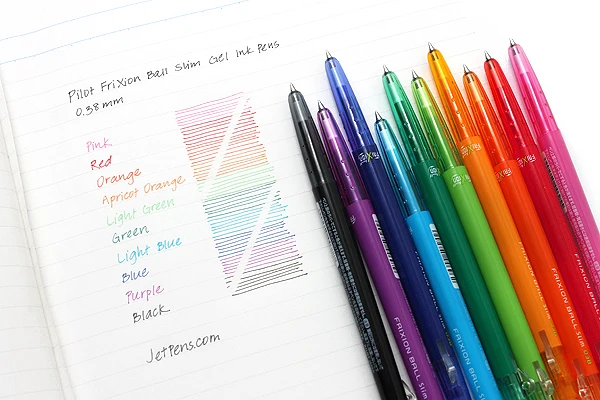 Pilot FriXion Ball Slim Gel Ink Pens
0.38mm
Pink
Red
Orange
Apricot Orange
Light Green
Green
Light Blue
Blue
Purple
Black
JetPens.com
FRIXION BALL Slim
FRIXION BALL Slim
FRIXION BALL Slim 038
FRIXION BALL Slim
FRIXION BALL Slim